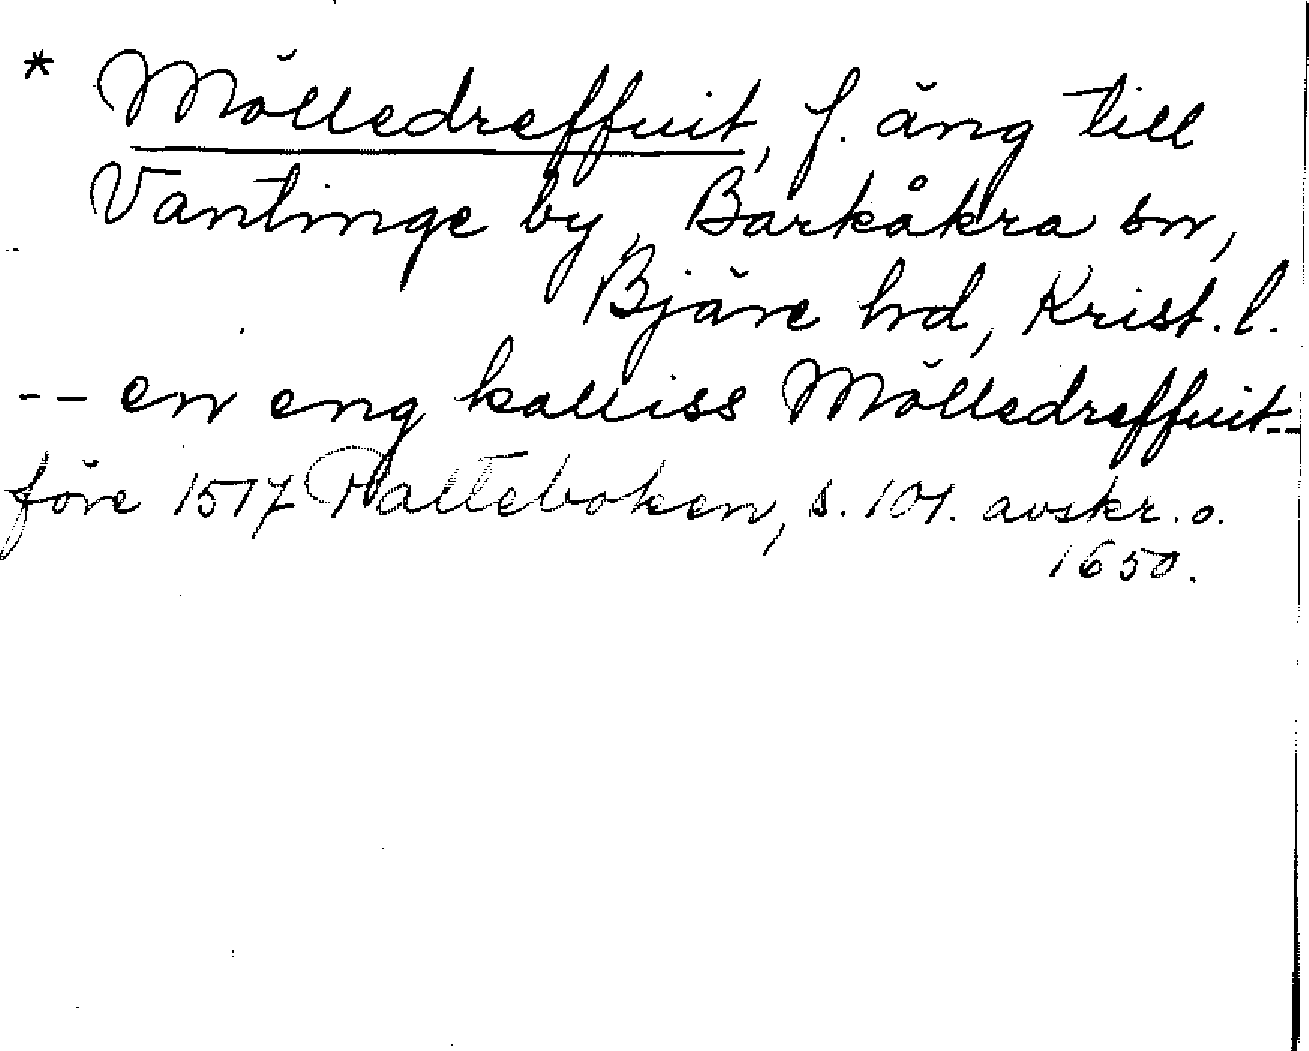 * Mölledreffuit, f. äng till
Vantinge by, Barkåkra sn,
Bjäre hd, Krist. l.
-- en eng kalliss Mölledreffuit--
före 1517 Palteboken, s. 101. avskr. o.
1650.